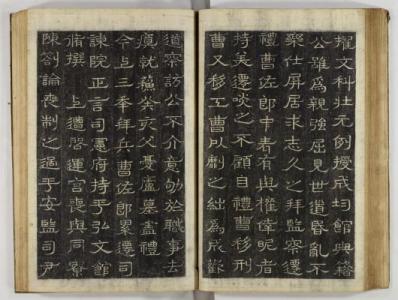 擢文科壯元例授成均館典籍
公雖爲親強屈見世道昏亂不
樂仕屏居求志久之拜監察遷
禮曹佐郎中書有與權倖昵者
持美遷啖之不顧自禮曹移刑
曹又移工曹以劇之絀爲成歡
道察訪公不介意劬於職事去
瘼就蘓癸亥父憂廬墓盡禮
今上三秊拜兵曹佐郎累遷司
諫院正言司憲府持平弘文館
脩撰 上遭啓運宮喪與同寮
陳劄論喪制之過平安監司尹